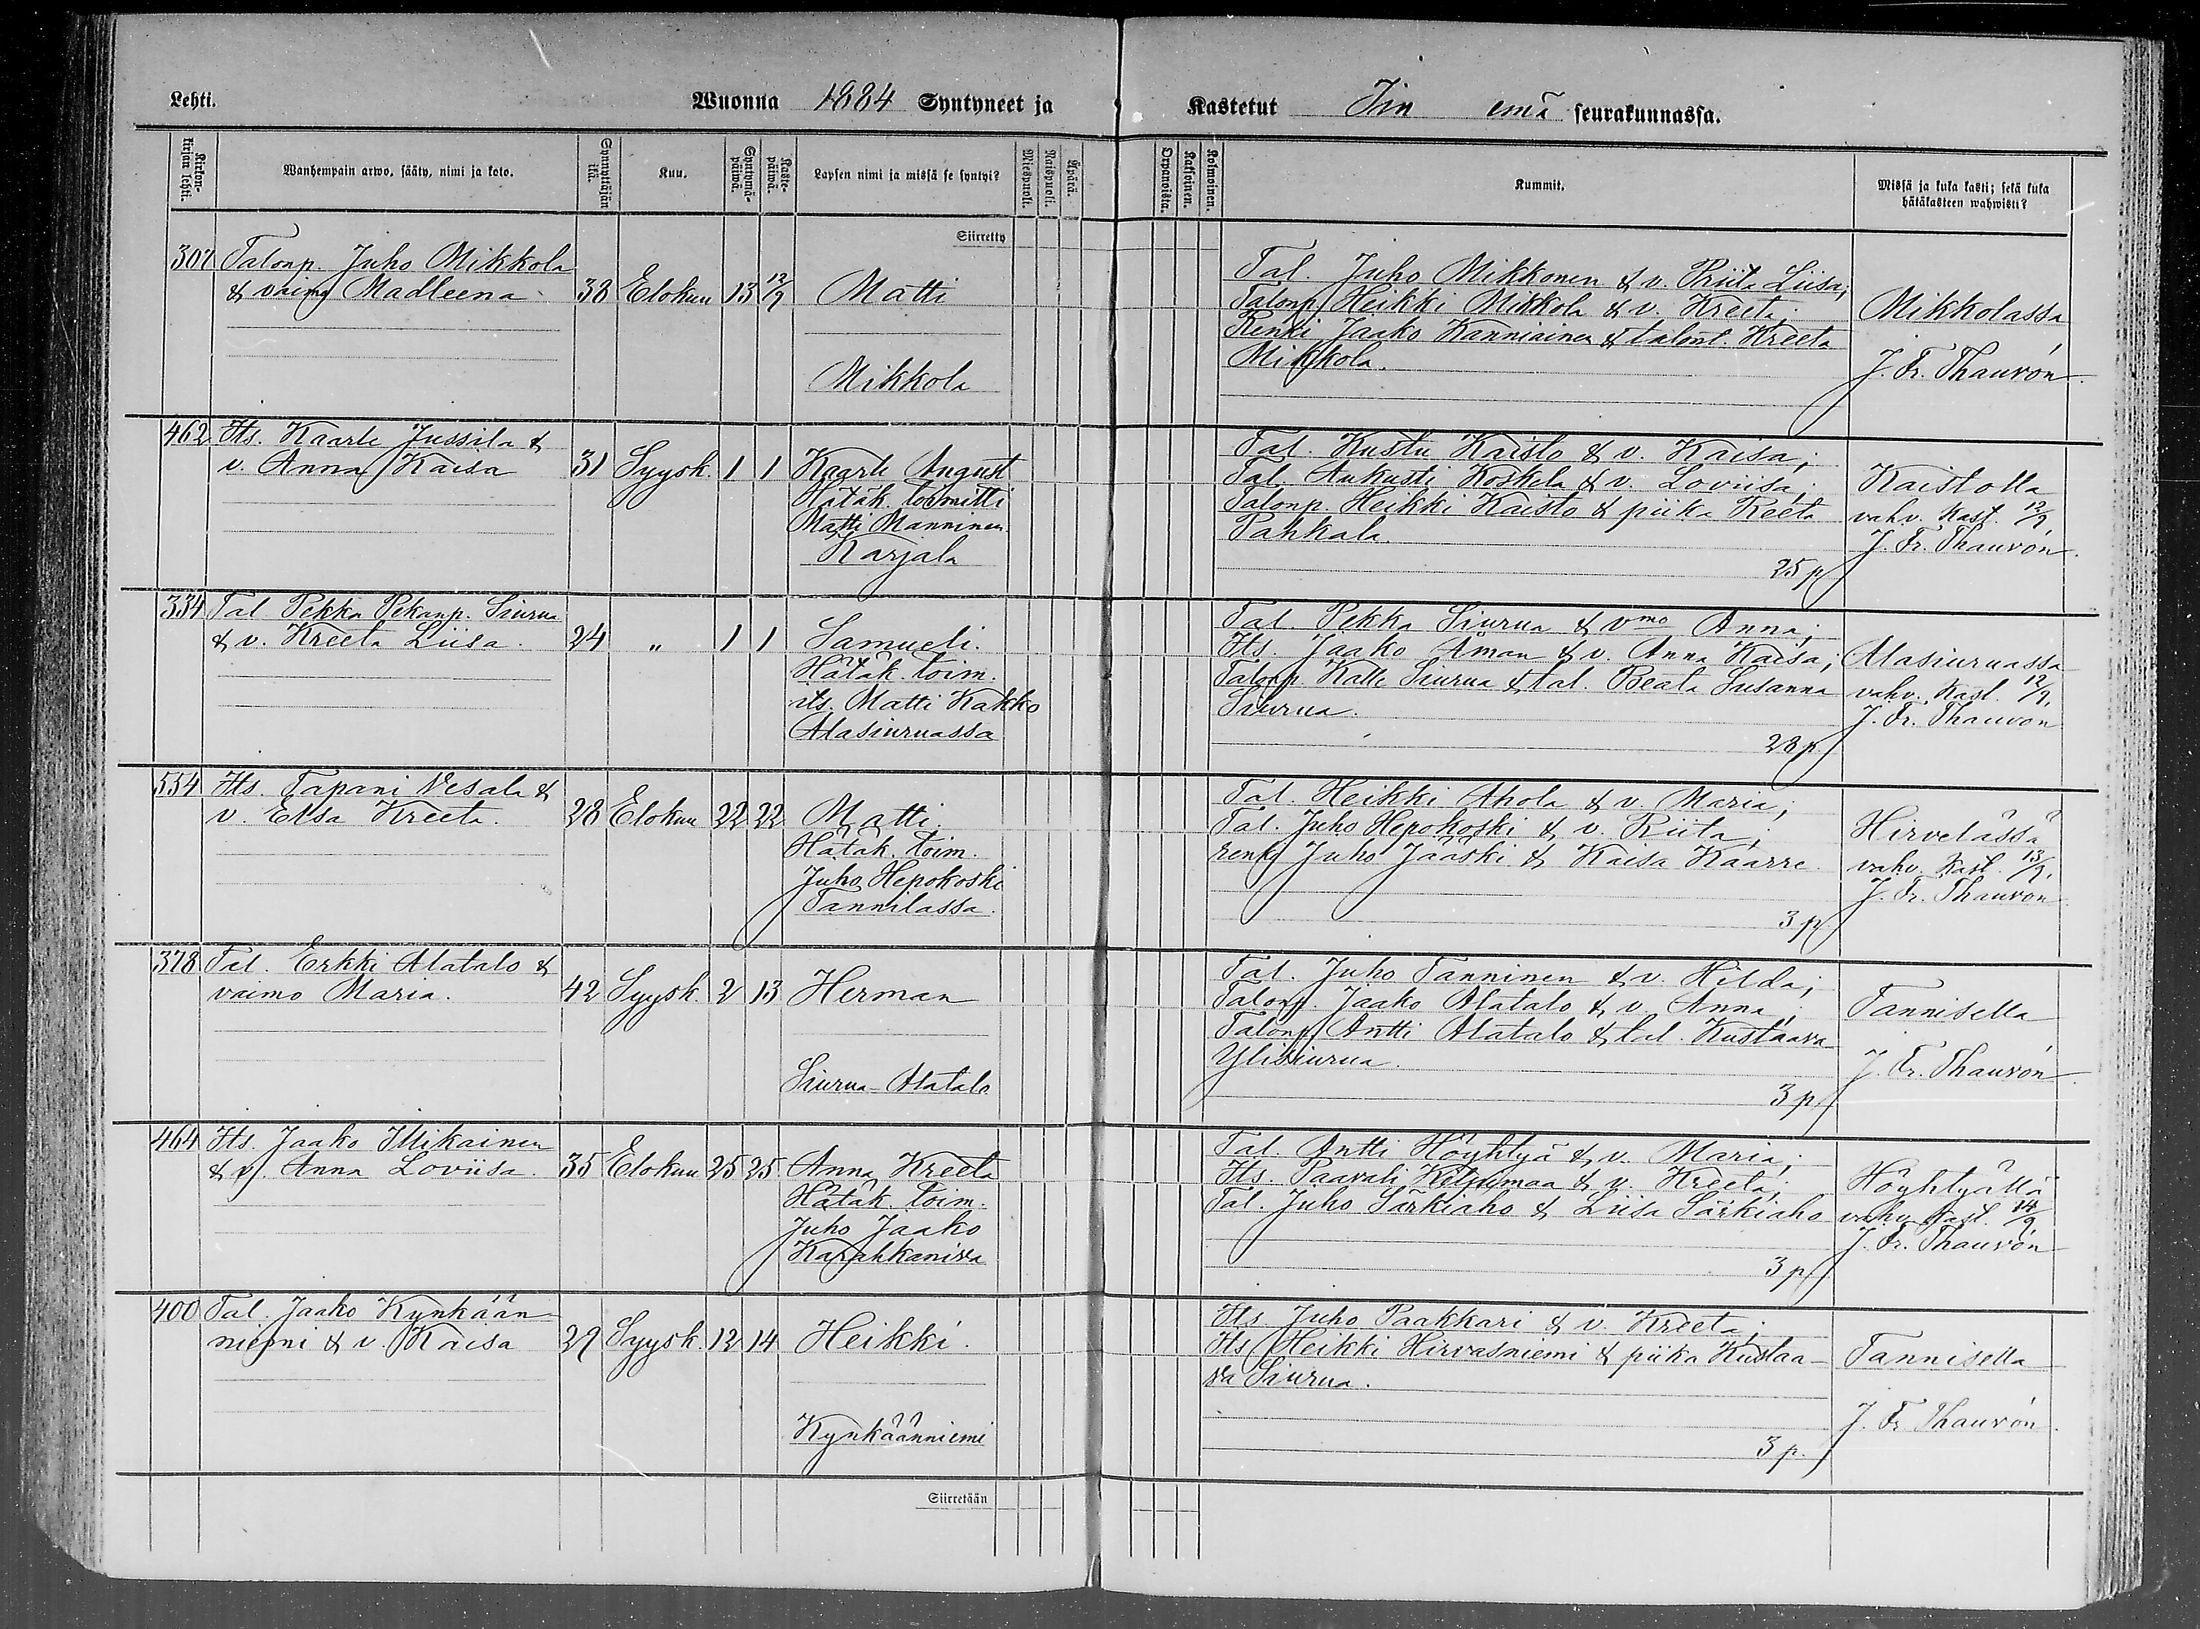 Lehti. Wuonna 1884 Syntyneet ja Kastetut Iin emä seurakunnassa.
Kirkon-kirjan lehti. Wanhempain arwo, sääty, nimi ja koto. Synnyttäjän ikä. Kuu. Syntymä-päiwä. Kaste-päiwä. Lapsen nimi ja missä se syntyi? Miespuoli. Naispuoli. Äpärä. Orpanoista. Kaksoinen. Kolmoinen. Kummit. Missä ja kuka kasti; sekä kuka hätäkasteen wahwisti?
Siirretty
307 Talonp. Juho Mikkola
& vaimo Madleena 38 Elokuu 13 12/9 Matti
Mikkola
Tal. Juho Mikkonen & v. Riita Liisa;
Talonp. Heikki Mikkola & v. Kreeta;
Renki Jaako Kanniainen & talont. Kreeta
Mikkola.
Mikkolassa
J. Fr. Thauvón.
462 Its. Kaarle Jussila &
v. Anna Kaisa 31 Syysk. 1 1 Kaarle August
Hätäk. toimitti
Matti Manninen
Karjala
Tal. Kustu Kaisto & v. Kaisa;
Tal. Aukusti Koskela & v. Loviisa;
Talonp Heikki Kaisto & piika Reeta
Pahkala.
25 p
Kaistolla
vahv. kast. 12/9.
J. Fr. Thauvón.
334 Tal Pekka Pekanp. Siurua
& v. Kreeta Liisa. 24 " 1 1 Samueli.
Hätäk. toim.
its. Matti Kakko
Alasiuruassa
Tal. Pekka Siurua & vmo Anna;
Its. Jaako Åman & v. Anna Kaisa;
Talonp. Kalle Siurua & tal. Beata Susanna
Siurua.
28 p
Alasiuruassa
vahv. kast. 12/9.
J. Fr. Thauvón
554 Its. Tapani Vesala &
v. Elsa Kreeta. 28 Elokuu 22 22 Matti.
Hätäk. toim.
Juho Hepokoski
Tannilassa.
Tal. Heikki Ahola & v. Maria;
Tal. Juho Hepokoski & v. Riita;
renki Juho Jääski & Kaisa Kaarre.
3 p
Hirvelässä
vahv. kast. 13/9.
J. Fr. Thauvón
378 Tal. Erkki Alatalo &
vaimo Maria. 42 Syysk. 2 13 Herman
Siurua-Alatalo
Tal. Juho Tanninen & v. Hilda;
Talonp. Jaako Alatalo & v. Anna;
Talonp. Antti Alatalo & tal. Kustaava
Ylisiurua.
3 p
Tannisella
J. Fr. Thauvón.
464 Its. Jaako Illikainen
& v. Anna Loviisa. 35 Elokuu 25 25 Anna Kreeta
Hätäk. toim.
Juho Jaako
Karahkaniva
Tal. Antti Höyhtyä & v. Maria;
Its. Paavali Keljumaa & v. Kreeta;
Tal. Juho Särkiaho & Liisa Särkiaho
3 p
Höyhtyällä
vahv. kast. 14/9
J. Fr. Thauvón
400 Tal. Jaako Kynkään-
niemi & v. Kaisa 29 Syysk. 12 14 Heikki.
Kynkäänniemi
Its Juho Paakkari & v. Kreeta;
Its Heikki Hirvasniemi & piika Kustaa-
va Siurua.
3 p.
Tannisella
J. Fr Thauvón.
Siirretään